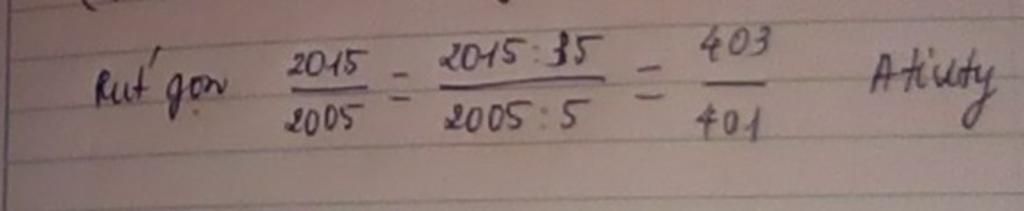 Rút gọn 2015/2005 = 2015:35/2005:5 = 403/401 Ativity